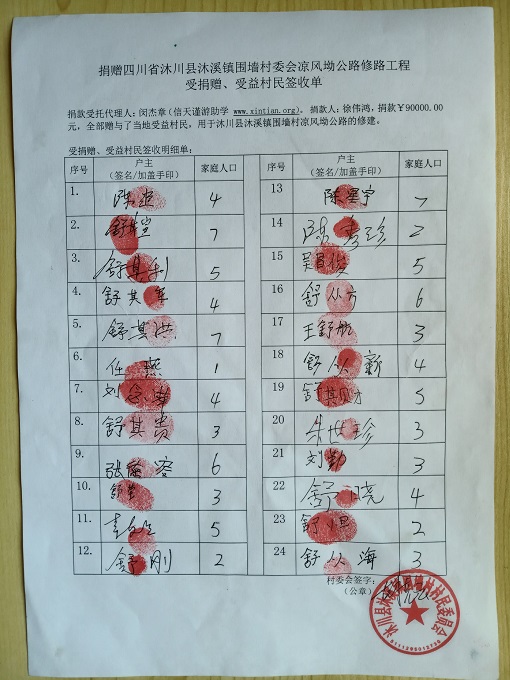 捐赠四川省沐川县沐溪镇围墙村委会凉风坳公路修路工程
受捐赠、受益村民签收单
捐款受托代理人：闵杰章（信天谨游助学 www.xintian.org），捐款人：徐伟鸿，捐款￥90000.00
元，全部赠与了当地受益村民，用于沐川县沐溪镇围墙村凉风坳公路的修建。
受捐赠、受益村民签收明细单：
序号 户主（签名/加盖手印） 家庭人口 序号 户主（签名/加盖手印） 家庭人口
1. 陈 4 13 陈星宇 7
2. 舒 7 14 陈秀珍 2
3. 舒其利 5 15 吴 5
4. 舒其军 4 16 舒从方 6
5. 舒其洪 7 17 王舒 3
6. 任燕 1 18 舒从新 4
7. 刘 4 19 舒其贝才 5
8. 舒其贵 3 20 朱世珍 3
9. 张 容 6 21 刘勤 3
10. 3 22 舒晓 4
11. 5 23 舒 2
12. 舒刚 2 24 舒从海 3
村委会签字：
（公章）
沐川县沐溪镇围墙村村民委员会